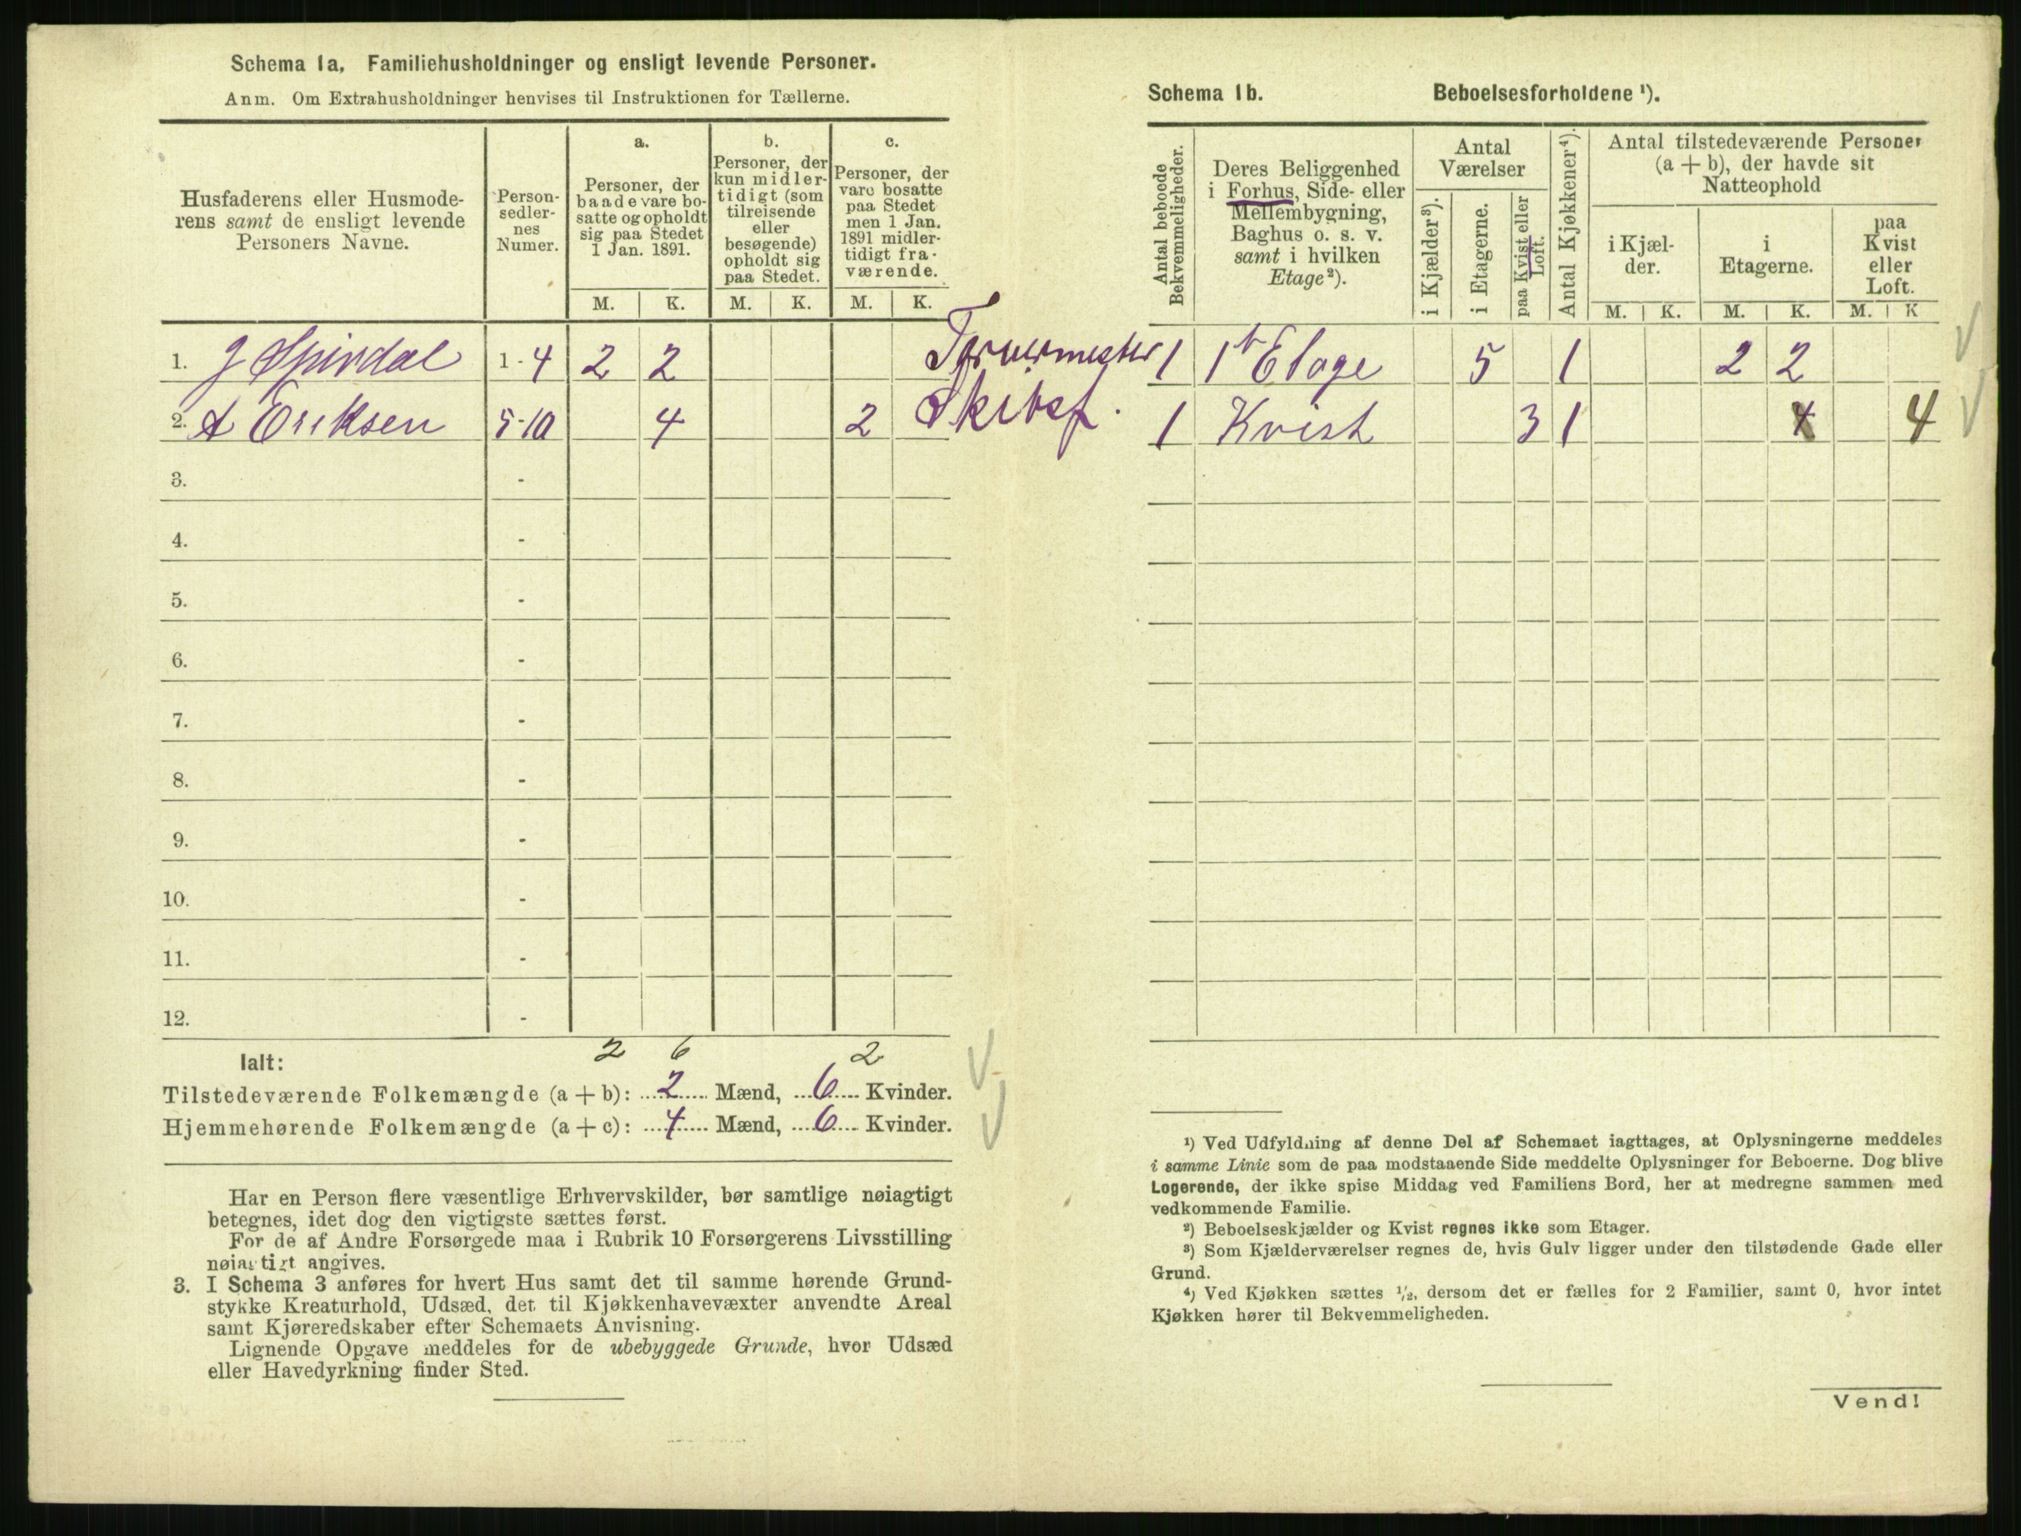 Schema 1a, Familiehusholdninger og ensligt levende Personer.
Anm. Om Extrahusholdninger henvises til Instruktionen for Tællerne.
Husfaderens eller Husmode-
rens samt de ensligt levende
Personers Navne.
Person-
sedler-
nes
Numer.
a.
Personer, der
baade vare bo-
satte og opholdt
sig paa Stedet
1 Jan. 1891.
M. K.
b.
Personer, der
kun midler-
tidigt (som
tilreisende
eller
besøgende)
opholdt sig
paa Stedet.
M. K.
c.
Personer, der
vare bosatte
paa Stedet
men 1 Jan.
1891 midler-
tidigt fra-
værende.
M. K.
1. J Spirdal 1-4 2 2
2. A Eriksen 5-10 4 2 Skibsf.
3. -
4. -
5. -
6. -
7. -
8. -
9. -
10. -
11. -
12. -
2 6 2
Ialt:
Tilstedeværende Folkemængde (a + b): 2 Mænd, 6 Kvinder.
Hjemmehørende Folkemængde (a + c): 4 Mænd, 6 Kvinder.
Har en Person flere væsentlige Erhvervskilder, bør samtlige nøiagtigt
betegnes, idet dog den vigtigste sættes først.
For de af Andre Forsørgede maa i Rubrik 10 Forsørgerens Livsstilling
nøiagtigt angives.
3. I Schema 3 anføres for hvert Hus samt det til samme hørende Grund-
stykke Kreaturhold, Udsæd, det til Kjøkkenhavevæxter anvendte Areal
samt Kjøreredskaber efter Schemaets Anvisning.
Lignende Opgave meddeles for de ubebyggede Grunde, hvor Udsæd
eller Havedyrkning finder Sted.
Schema 1b. Beboelsesforholdene ¹).
Antal beboede
Bekvemmeligheder.
Deres Beliggenhed
i Forhus, Side- eller
Mellembygning,
Baghus o. s. v.
samt i hvilken
Etage²).
Antal
Værelser
i Kjælder³).
i Etagerne.
paa Kvist eller
Loft.
Antal Kjøkkener⁴).
Antal tilstedeværende Personer
(a + b), der havde sit
Natteophold
i Kjæl-
der.
M. K.
i
Etagerne.
M. K.
paa
Kvist
eller
Loft.
M. K
1 1ᵗᵉ Etage 5 1 2 2
1 Kvist 3 1 4 4
¹) Ved Udfyldning af denne Del af Schemaet iagttages, at Oplysningerne meddeles
i samme Linie som de paa modstaaende Side meddelte Oplysninger for Beboerne. Dog blive
Logerende, der ikke spise Middag ved Familiens Bord, her at medregne sammen med
vedkommende Familie.
²) Beboelseskjælder og Kvist regnes ikke som Etager.
³) Som Kjælderværelser regnes de, hvis Gulv ligger under den tilstødende Gade eller
Grund.
⁴) Ved Kjøkken sættes ¹/₂, dersom det er fælles for 2 Familier, samt 0, hvor intet
Kjøkken hører til Bekvemmeligheden.
Vend!